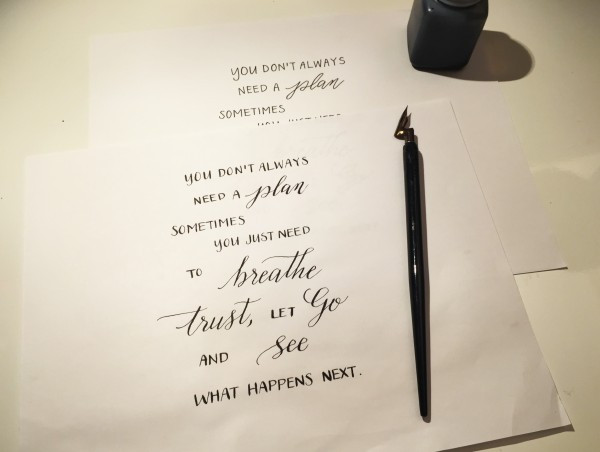 YOU DON'T ALWAYS
NEED A plan
SOMETIMES
YOU DON'T ALWAYS
NEED A plan
SOMETIMES
YOU JUST NEED
TO breathe
trust, LET Go
AND see
WHAT HAPPENS NEXT.